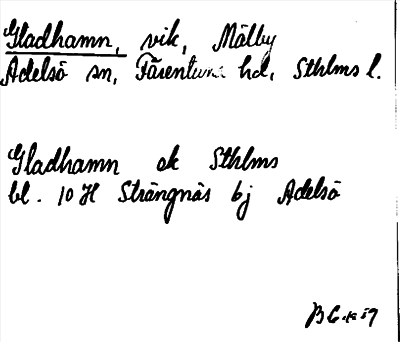 Gladhamn, vik, Mälby
Adelsö sn, Färentuna hd, Sthlms l.
Gladhamn ek Sthlms
bl. 10 H Strängnäs bj Adelsö